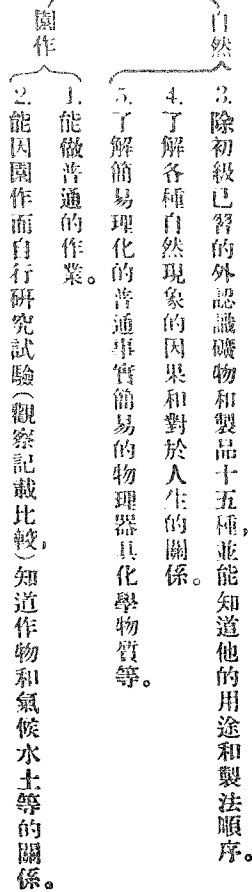 自然
3. 除初級已習的外認識礦物和製品十五種，並能知道他的用途和製法順序。
4. 了解各種自然現象的因果和對於人生的關係。
5. 了解簡易理化的普通事實簡易的物理器具化學物質等。
園作
1. 能做普通的作業。
2. 能因園作而自行研究試驗（觀察記載比較），知道作物和氣候水土等的關係。